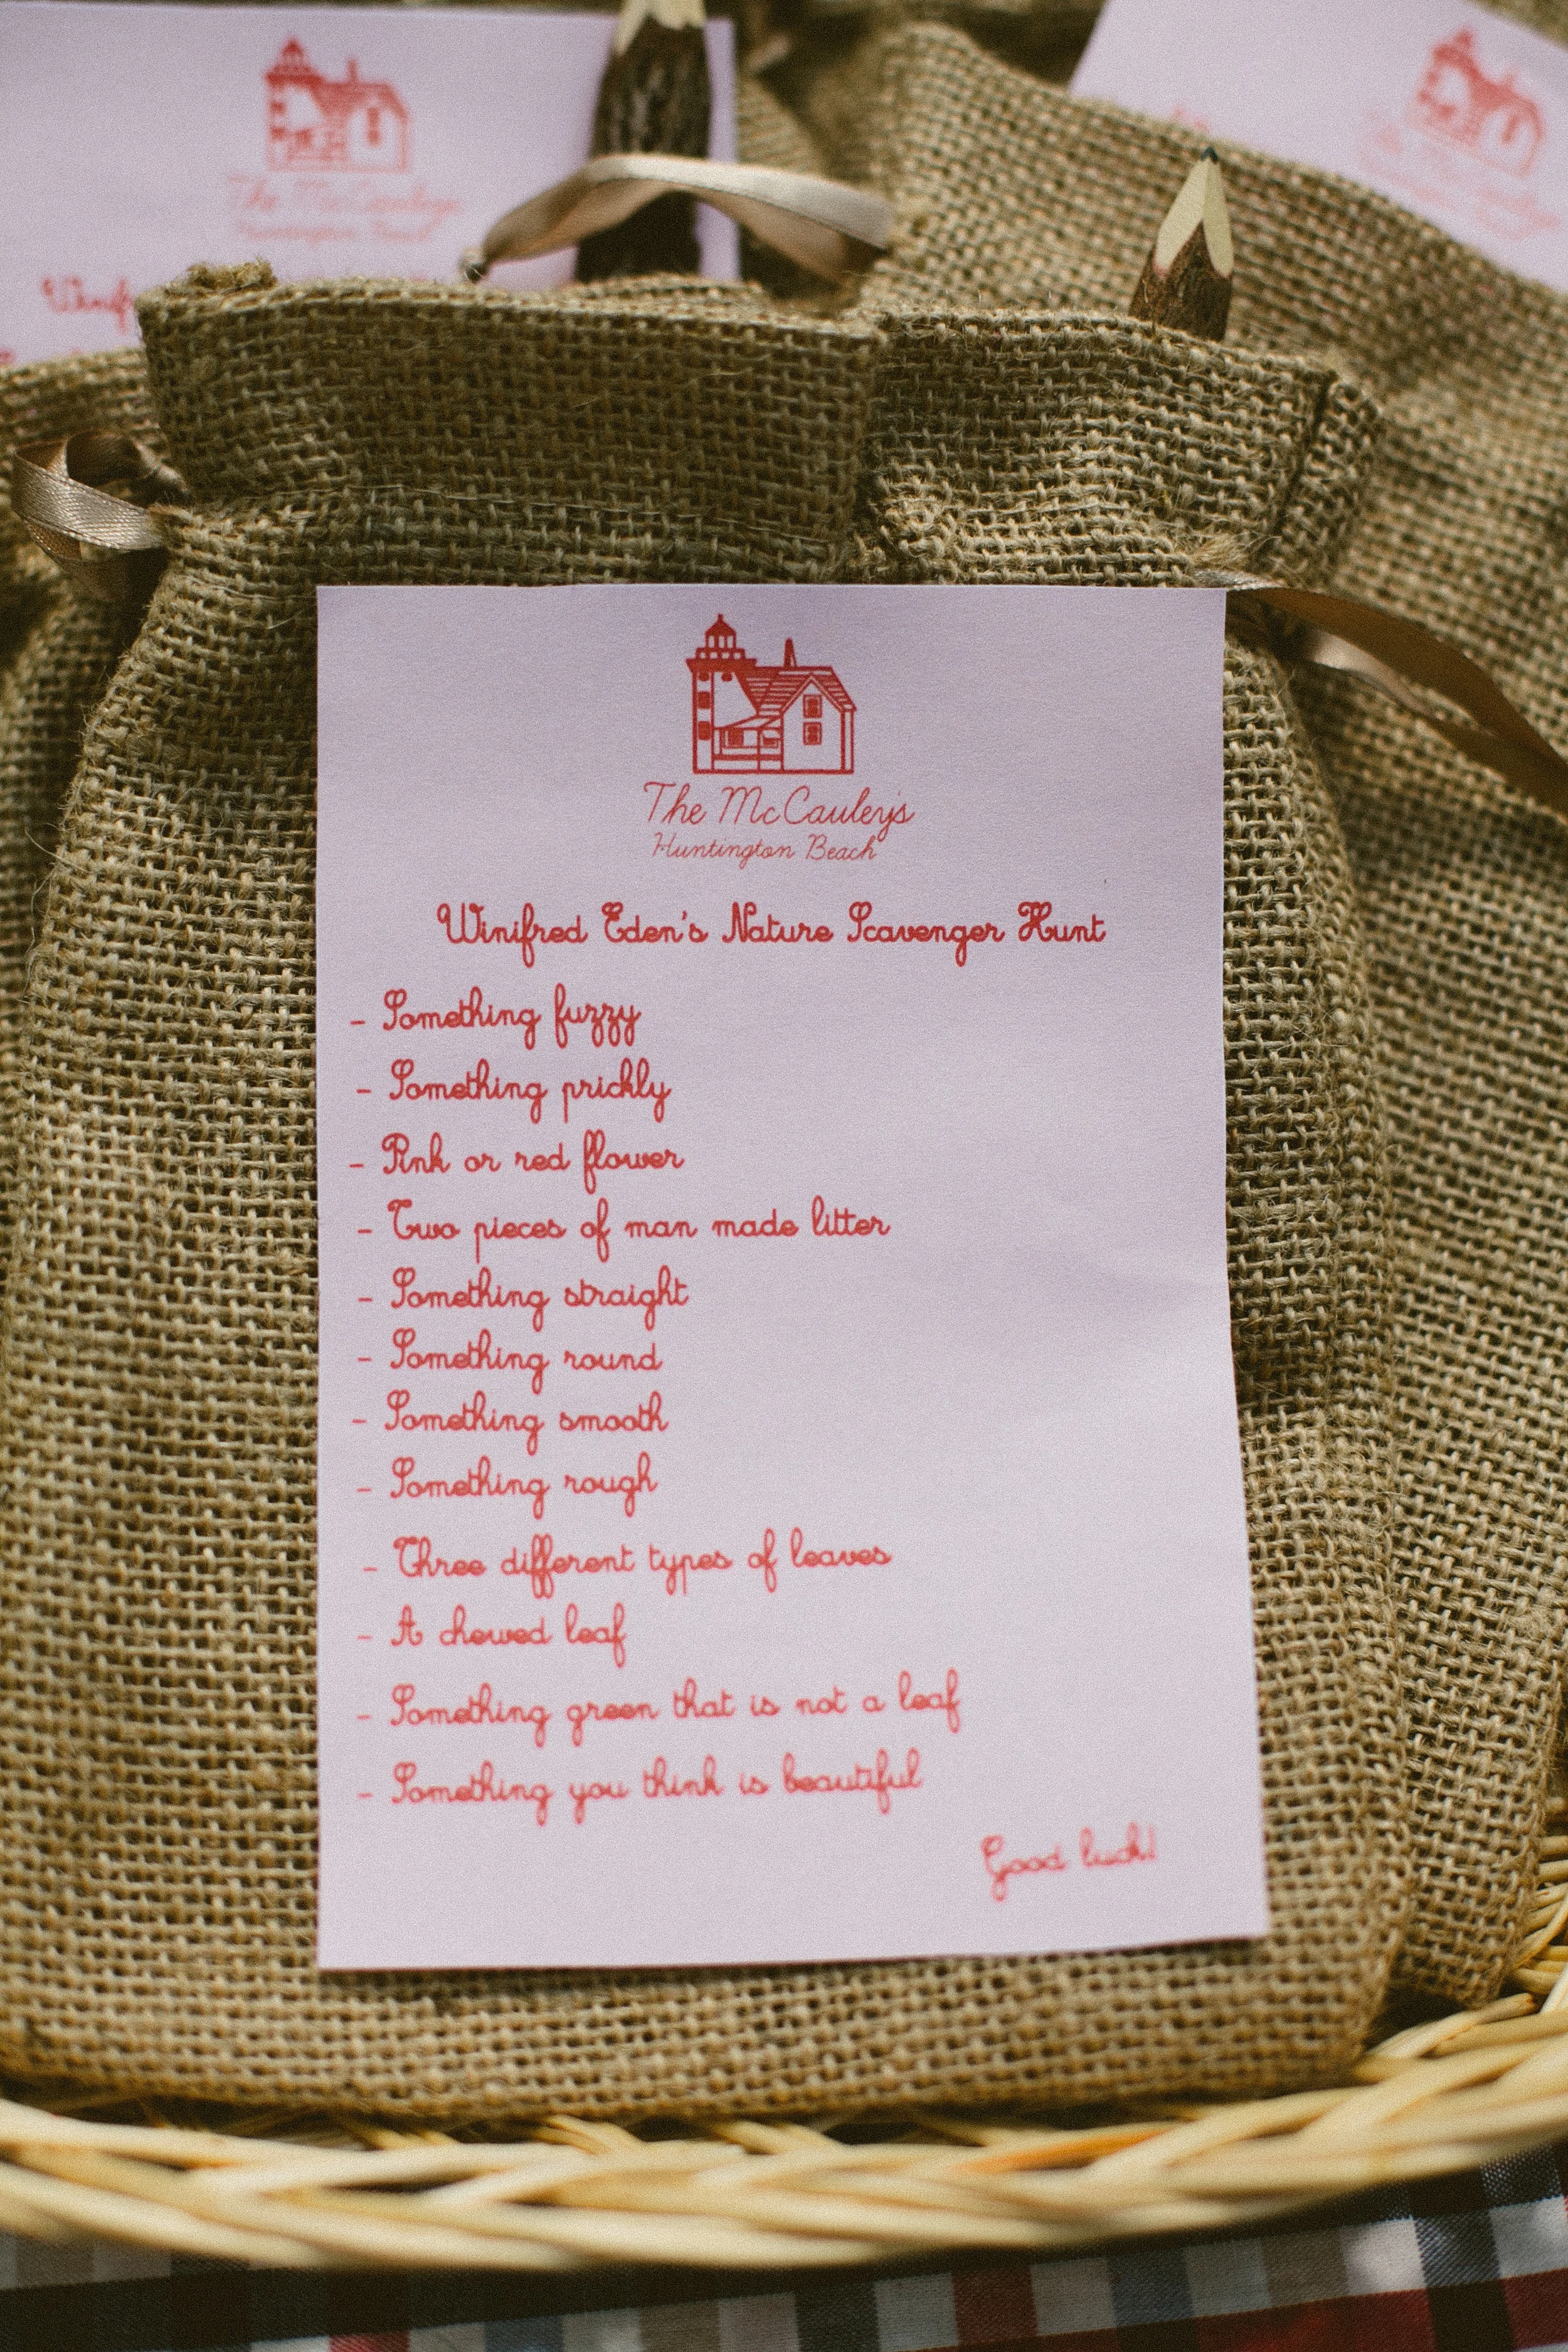 The McCauley's
Huntington Beach
Winif
The McCauleys
Huntington Beach
Winifred Eden's Nature Scavenger Hunt
- Something fuzzy
- Something prickly
- Pink or red flower
- Two pieces of man made litter
- Something straight
- Something round
- Something smooth
- Something rough
- Three different types of leaves
- A chewed leaf
- Something green that is not a leaf
- Something you think is beautiful
Good luck!